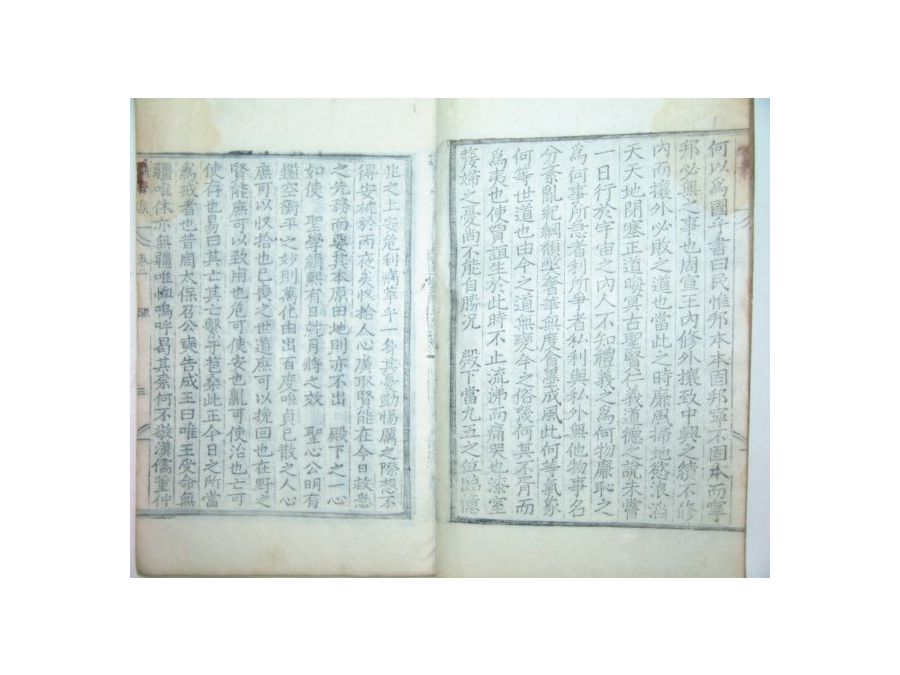 何以爲國乎書曰民惟邦本本固邦寧不固本而寧
邦必無之事也周宣王內修外攘致中興之績不修
內而攘外必敗之道也當此之時廉風掃地慾浪滔
天天地閉塞正道晦冥古聖賢仁義道德之說未嘗
一日行於宇宙之內人不知禮義之爲何物廉恥之
爲何事所急者利所爭者私利與私外無他物事名
分紊亂紀綱頹獘奢華無度貪墨成風此何等氣象
何等世道也由今之道無變今之俗幾何其不胥而
爲夷也使賈誼生於此時不止流涕而痛哭也漆室
嫠婦之憂尚不能自勝况 殿下當九五之位臨億
兆之上安危利病萃乎一身其憂勤惕厲之際想不
得安於丙夜矣收拾人心廣取賢能在今日救急
之先務而要其本原田地則亦不出 殿下之一心
如使 聖學緝熙有日就月將之效 聖心公明有
鑑空衡平之妙則萬化由出百度唯貞已散之人心
庶可以收拾也已喪之世道庶可以挽回也在野之
賢能庶可以致用也危可使安也亂可使治也亡可
使存也易曰其亡其亡繫于苞桑此正今日之所當
爲戒者也昔周太保召公奭告成王曰唯王受命無
疆唯休亦無疆唯恤嗚呼曷其柰何不敬漢儒董仲
卷二
三